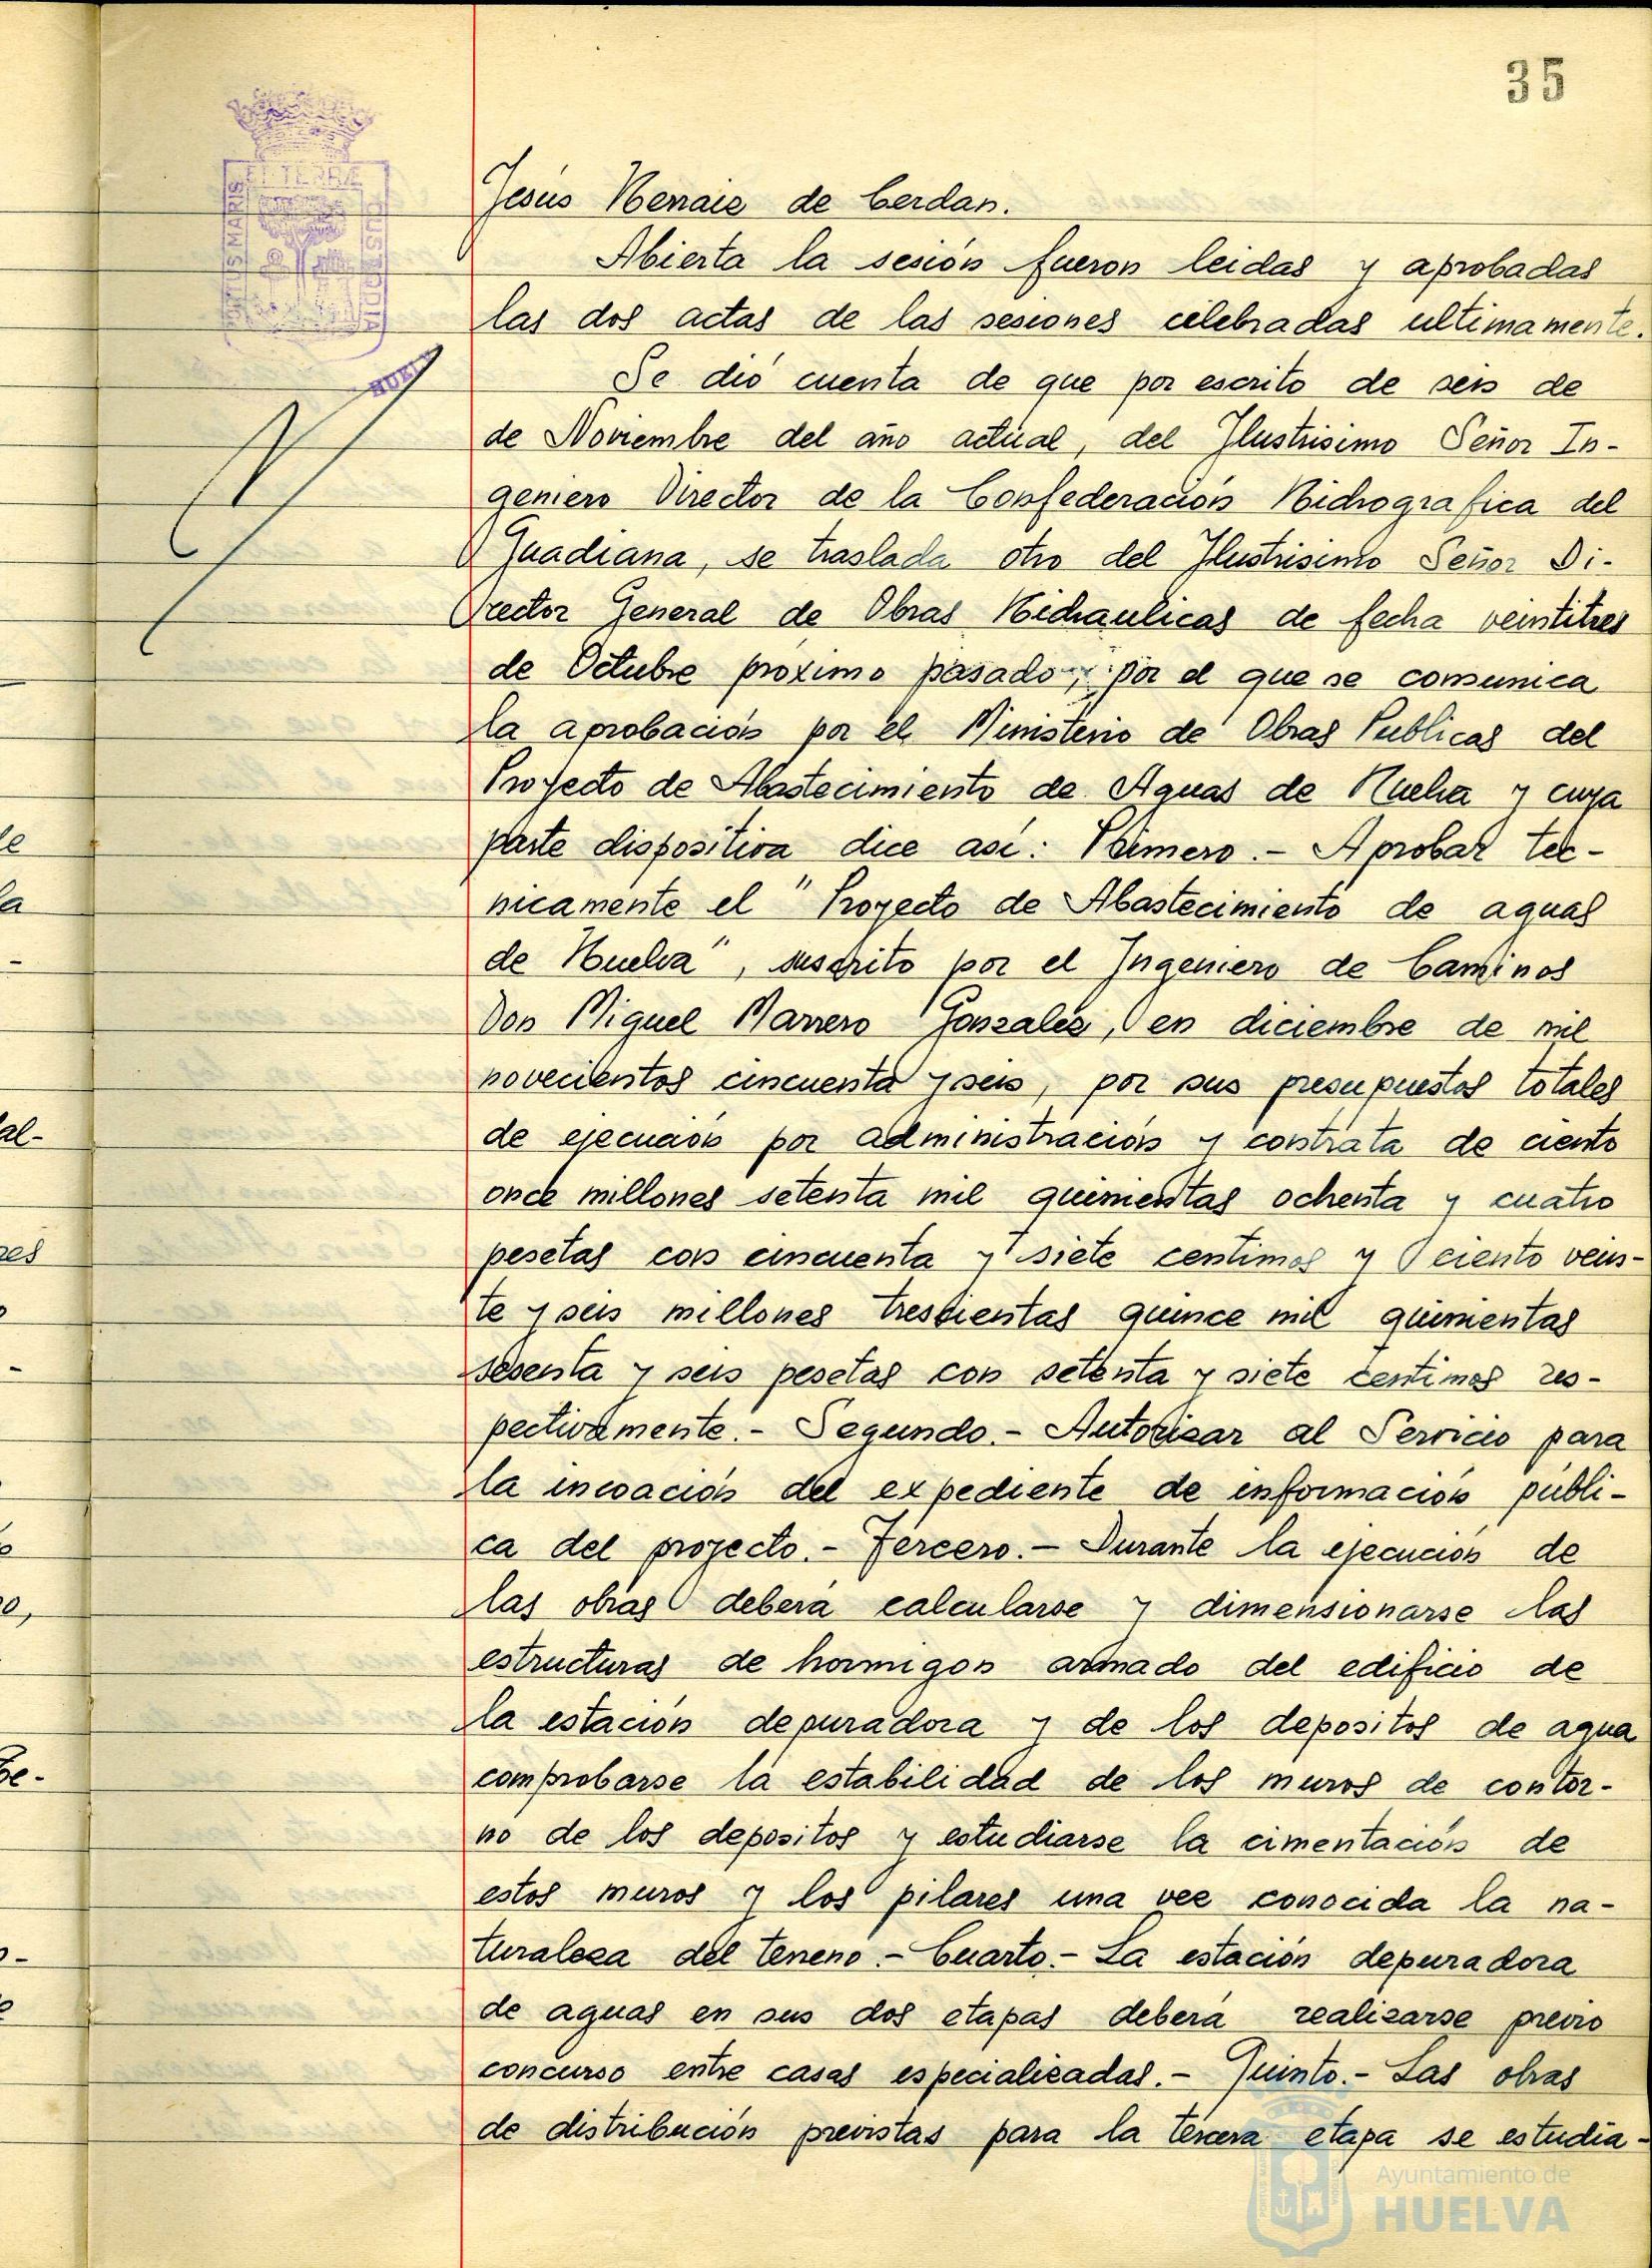 35
ET TERRÆ
PORTUS MARIS
CUSTODIA
HUELVA
Jesús Hernaiz de Cerdan.
Abierta la sesión fueron leidas y aprobadas
las dos actas de las sesiones celebradas ultimamente.
Se dió cuenta de que por escrito de seis de
de Noviembre del año actual, del Ilustrisimo Señor In-
geniero Director de la Confederación Hidrografica del
Guadiana, se traslada otro del Ilustrisimo Señor Di-
rector General de Obras Hidraulicas de fecha veintitres
de Octubre proximo pasado, por el que se comunica
la aprobación por el Ministerio de Obras Publicas del
Proyecto de Abastecimiento de Aguas de Huelva y cuya
parte dispositiva dice asi: Primero.- Aprobar tec-
nicamente el "Proyecto de Abastecimiento de aguas
de Huelva", suscrito por el Ingeniero de Caminos
Don Miguel Marrero Gonzalez, en diciembre de mil
novecientos cincuenta y seis, por sus presupuestos totales
de ejecución por administración y contrata de ciento
once millones setenta mil quinientas ochenta y cuatro
pesetas con cincuenta y siete centimos y ciento vein-
te y seis millones trescientas quince mil quinientas
sesenta y seis pesetas con setenta y siete centimos res-
pectivamente.- Segundo.- Autorizar al Servicio para
la incoación del expediente de información públi-
ca del proyecto.- Tercero.- Durante la ejecución de
las obras deberá calcularse y dimensionarse las
estructuras de hormigon armado del edificio de
la estación depuradora y de los depositos de agua
comprobarse la estabilidad de los muros de contor-
no de los depositos y estudiarse la cimentación de
estos muros y los pilares una vez conocida la na-
turaleza del terreno.- Cuarto.- La estación depuradora
de aguas en sus dos etapas deberá realizarse previo
concurso entre casas especializadas.- Quinto.- Las obras
de distribución previstas para la tercera etapa se estudia-
Ayuntamiento de
HUELVA